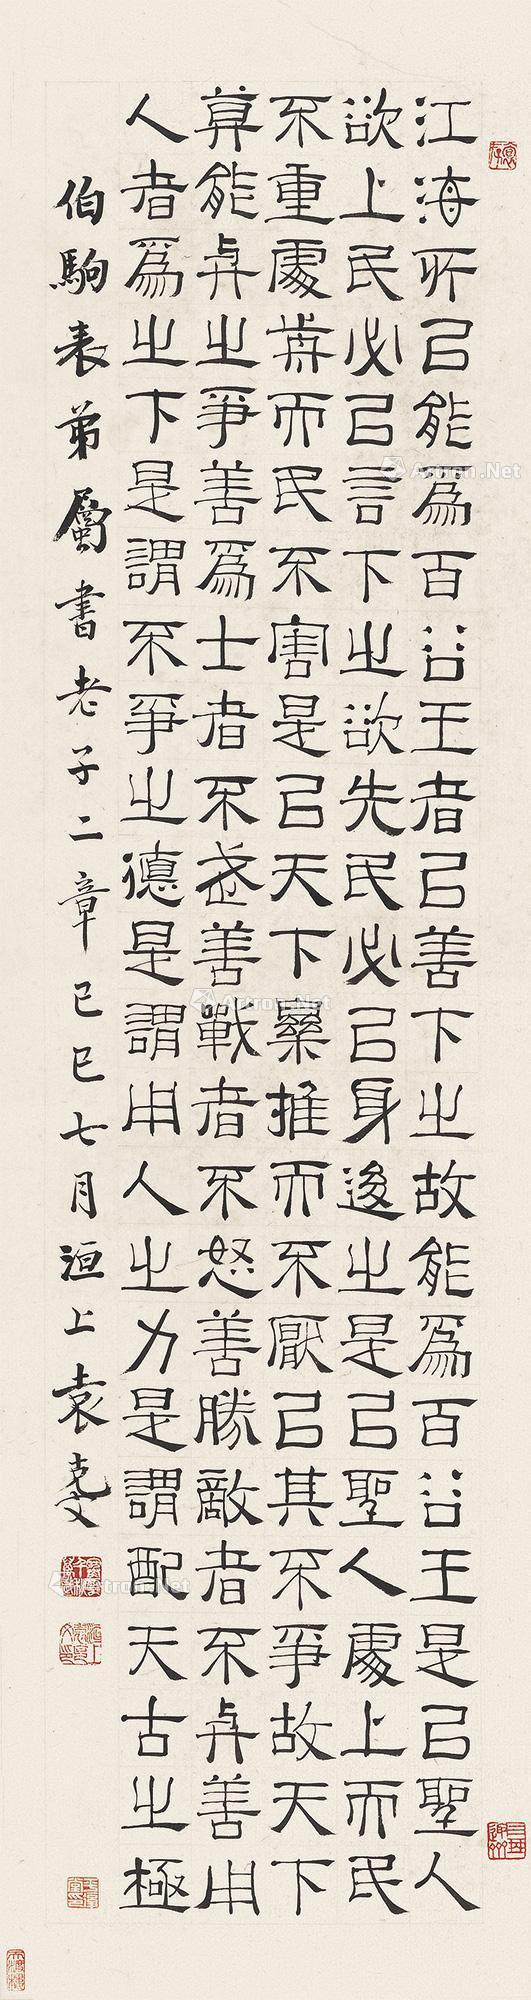 江海所㠯能爲百谷王者㠯善下之故能爲百谷王是㠯聖人
欲上民必㠯言下之欲先民必㠯身後之是㠯聖人處上而民
不重處歬而民不害是㠯天下樂推而不厭㠯其不爭故天下
莫能與之爭善爲士者不武善戰者不怒善勝敵者不與善用
人者爲之下是謂不爭之德是謂用人之力是謂配天古之極
伯駒表弟屬書老子二章己巳七月洹上袁克文
Artron.Net
Artron.Net
Artron.Net